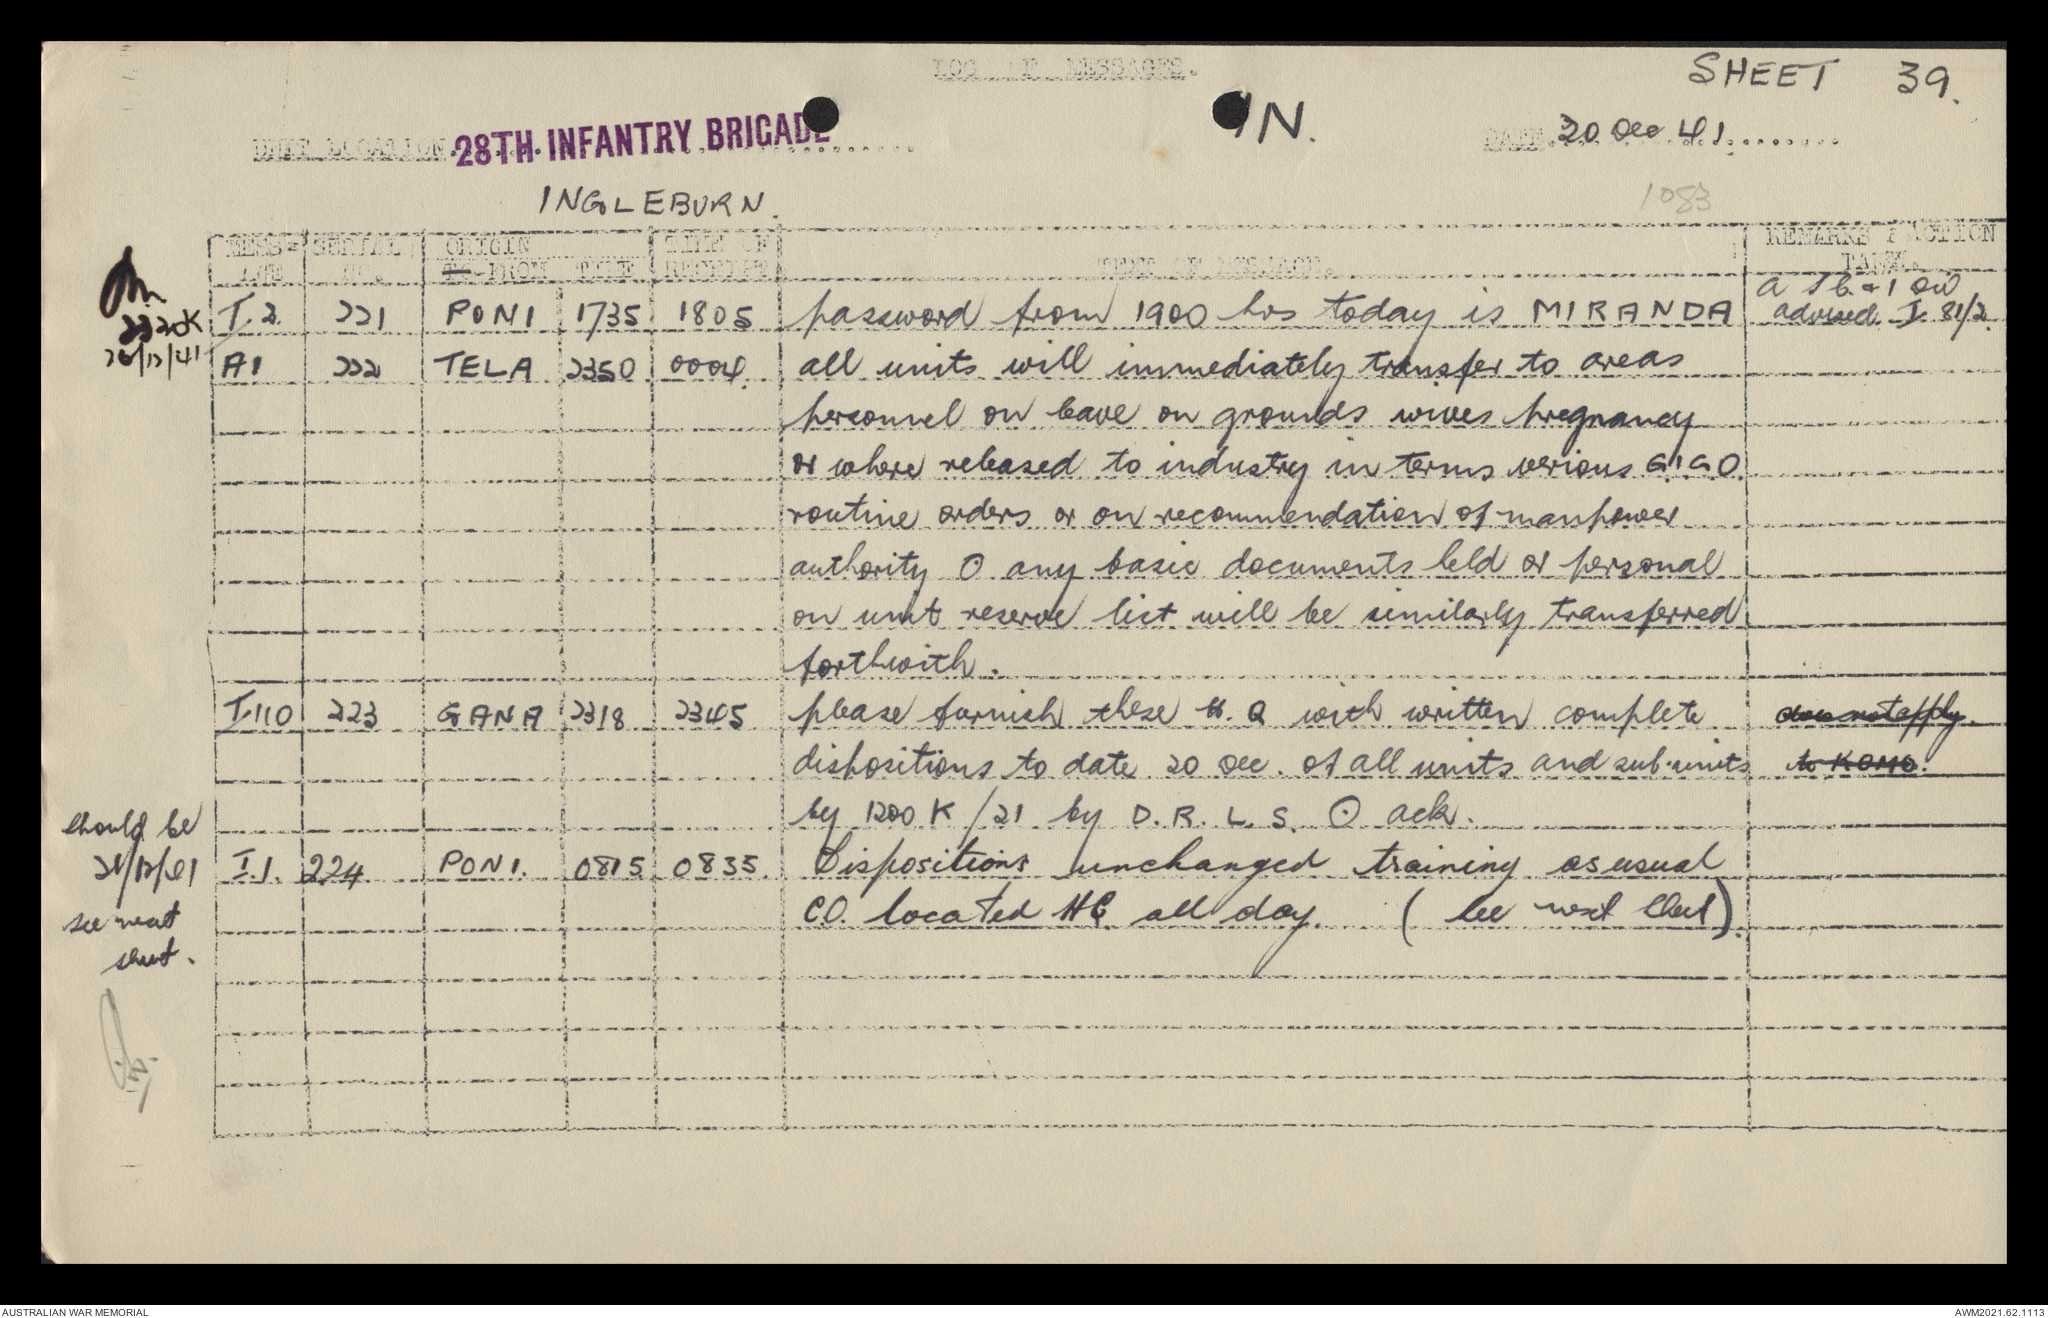 LOG OF MESSAGES.
SHEET 39.
IN.
UNIT LOCATION 28TH INFANTRY BRIGADE
DATE 20 Dec 41
INGLEBURN.
1083
MESS-AGE SERIAL NO. ORIGIN TO-FROM TIME TIME OF RECEIPT TEXT OF MESSAGE. REMARKS ACTION TAKEN.
2320K
20/12/41
T.2. 221 PONI 1735 1805 password from 1900 hrs today is MIRANDA
advised I 81/2
A1 222 TELA 2350 0004 all units will immediately transfer to areas
personnel on leave on grounds wives pregnancy
or where released to industry in terms verious G.I.G.O.
routine orders or on recommendation of manpower
authority O any basic documents held or personal
on unit reserve list will be similarly transferred
forthwith.
I.110 223 GANA 2318 2345 please furnish these H.Q with written complete does not apply
dispositions to date 20 Dec. of all units and sub-units to KOMO.
by 1200 K/21 by D.R.L.S. O ack.
should be
21/12/41
see next
sheet.
I.1. 224 PONI. 0815 0835. Dispositions unchanged training as usual
C.O. located HQ all day. (See next sheet)
AUSTRALIAN WAR MEMORIAL
AWM2021.62.1113